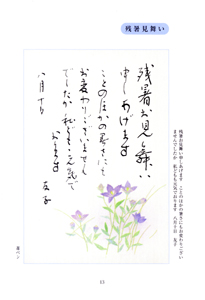 残暑見舞い
残暑お見舞い
申しあげます
ことのほかの暑さにも
お変わりございません
でしたか 私どもも元気で
おります
八月十日
友子
残暑お見舞い申しあげます ことのほかの暑さにもお変わりござい
ませんでしたか 私どもも元気でおります 八月十日 友子
13